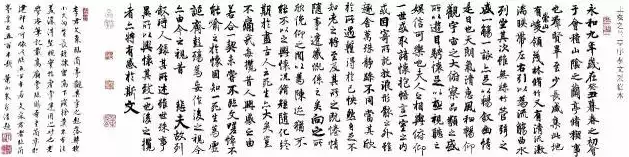 永和九年歲在癸丑暮春之初會
于會稽山陰之蘭亭脩稧事
也群賢畢至少長咸集此地
有崇山峻領茂林脩竹又有清流激
湍暎帶左右引以為流觴曲水
列坐其次雖無絲竹管弦之
盛一觴一詠亦足以暢敘幽情
是日也天朗氣清惠風和暢仰
觀宇宙之大俯察品類之盛
所以遊目騁懷足以極視聽之
娛信可樂也夫人之相與俯仰
一世或取諸懷抱悟言一室之內
或因寄所託放浪形骸之外雖
趣舍萬殊靜躁不同當其欣
於所遇蹔得於己怏然自足不
知老之將至及其所之既惓情
隨事遷感慨係之矣向之所
欣俛仰之閒以為陳迹猶不
能不以之興懷況脩短隨化終
期於盡古人云死生亦大矣豈
不痛哉每攬昔人興感之由
若合一契未嘗不臨文嗟悼不
能喻之於懷固知一死生為虛
誕齊彭殤為妄作後之視今
亦由今之視昔 悲夫故列
敘時人錄其所述雖世殊事
異所以興懷其致一也後之攬
者亦將有感於斯文